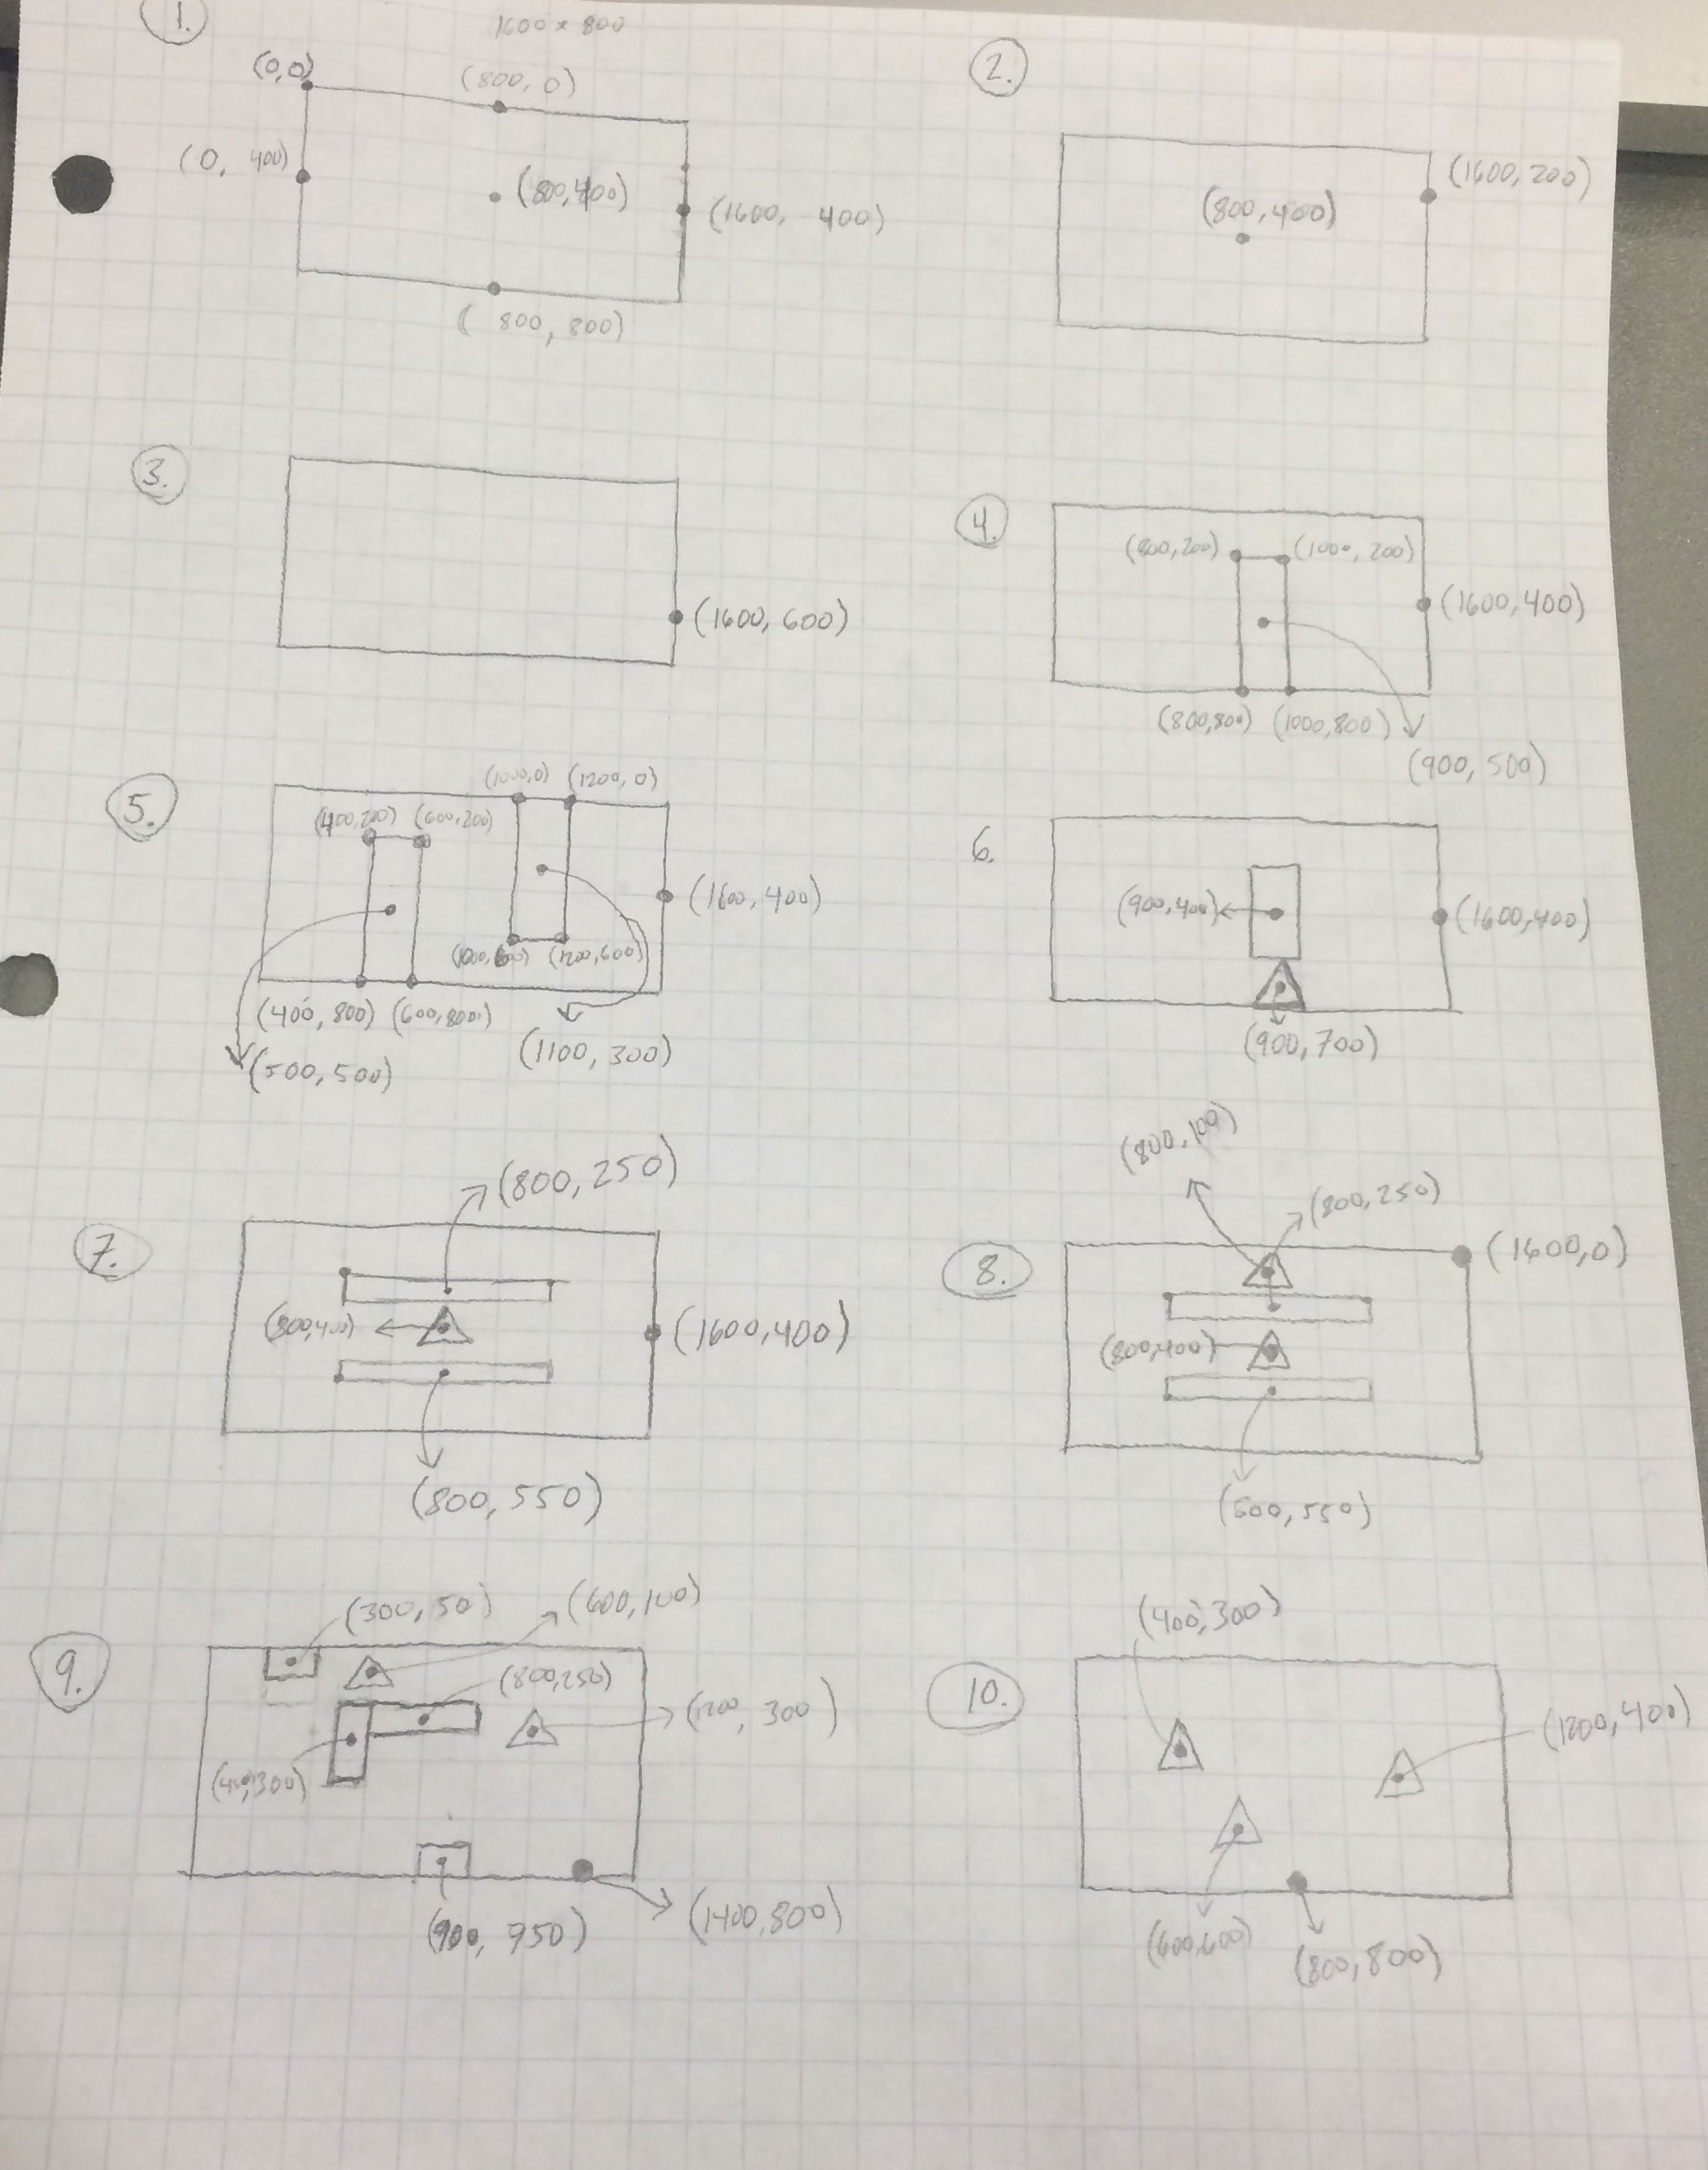 1.
1600 x 800
(0,0)
(800, 0)
(0, 400)
(800,400)
(1600, 400)
(800, 800)
2.
(1600, 200)
(800,400)
3.
(1600, 600)
4.
(800,200)
(1000, 200)
(1600,400)
(800,800)
(1000,800)
(900, 500)
5.
(1000,0)
(1200, 0)
(400,200)
(600,200)
(1600, 400)
(1000,600)
(1200,600)
(400, 800)
(600,800)
(500, 500)
(1100, 300)
6.
(900,400)
(1600,400)
(900, 700)
7.
(800, 250)
(800,400)
(1600,400)
(800, 550)
8.
(800, 100)
(800, 250)
(1600,0)
(800,400)
(550)
9.
(300, 50)
(600, 100)
(800,250)
(1200, 300)
300)
(900, 950)
(1400,800)
10.
(400, 300)
(1200, 400)
(600,600)
(800, 800)